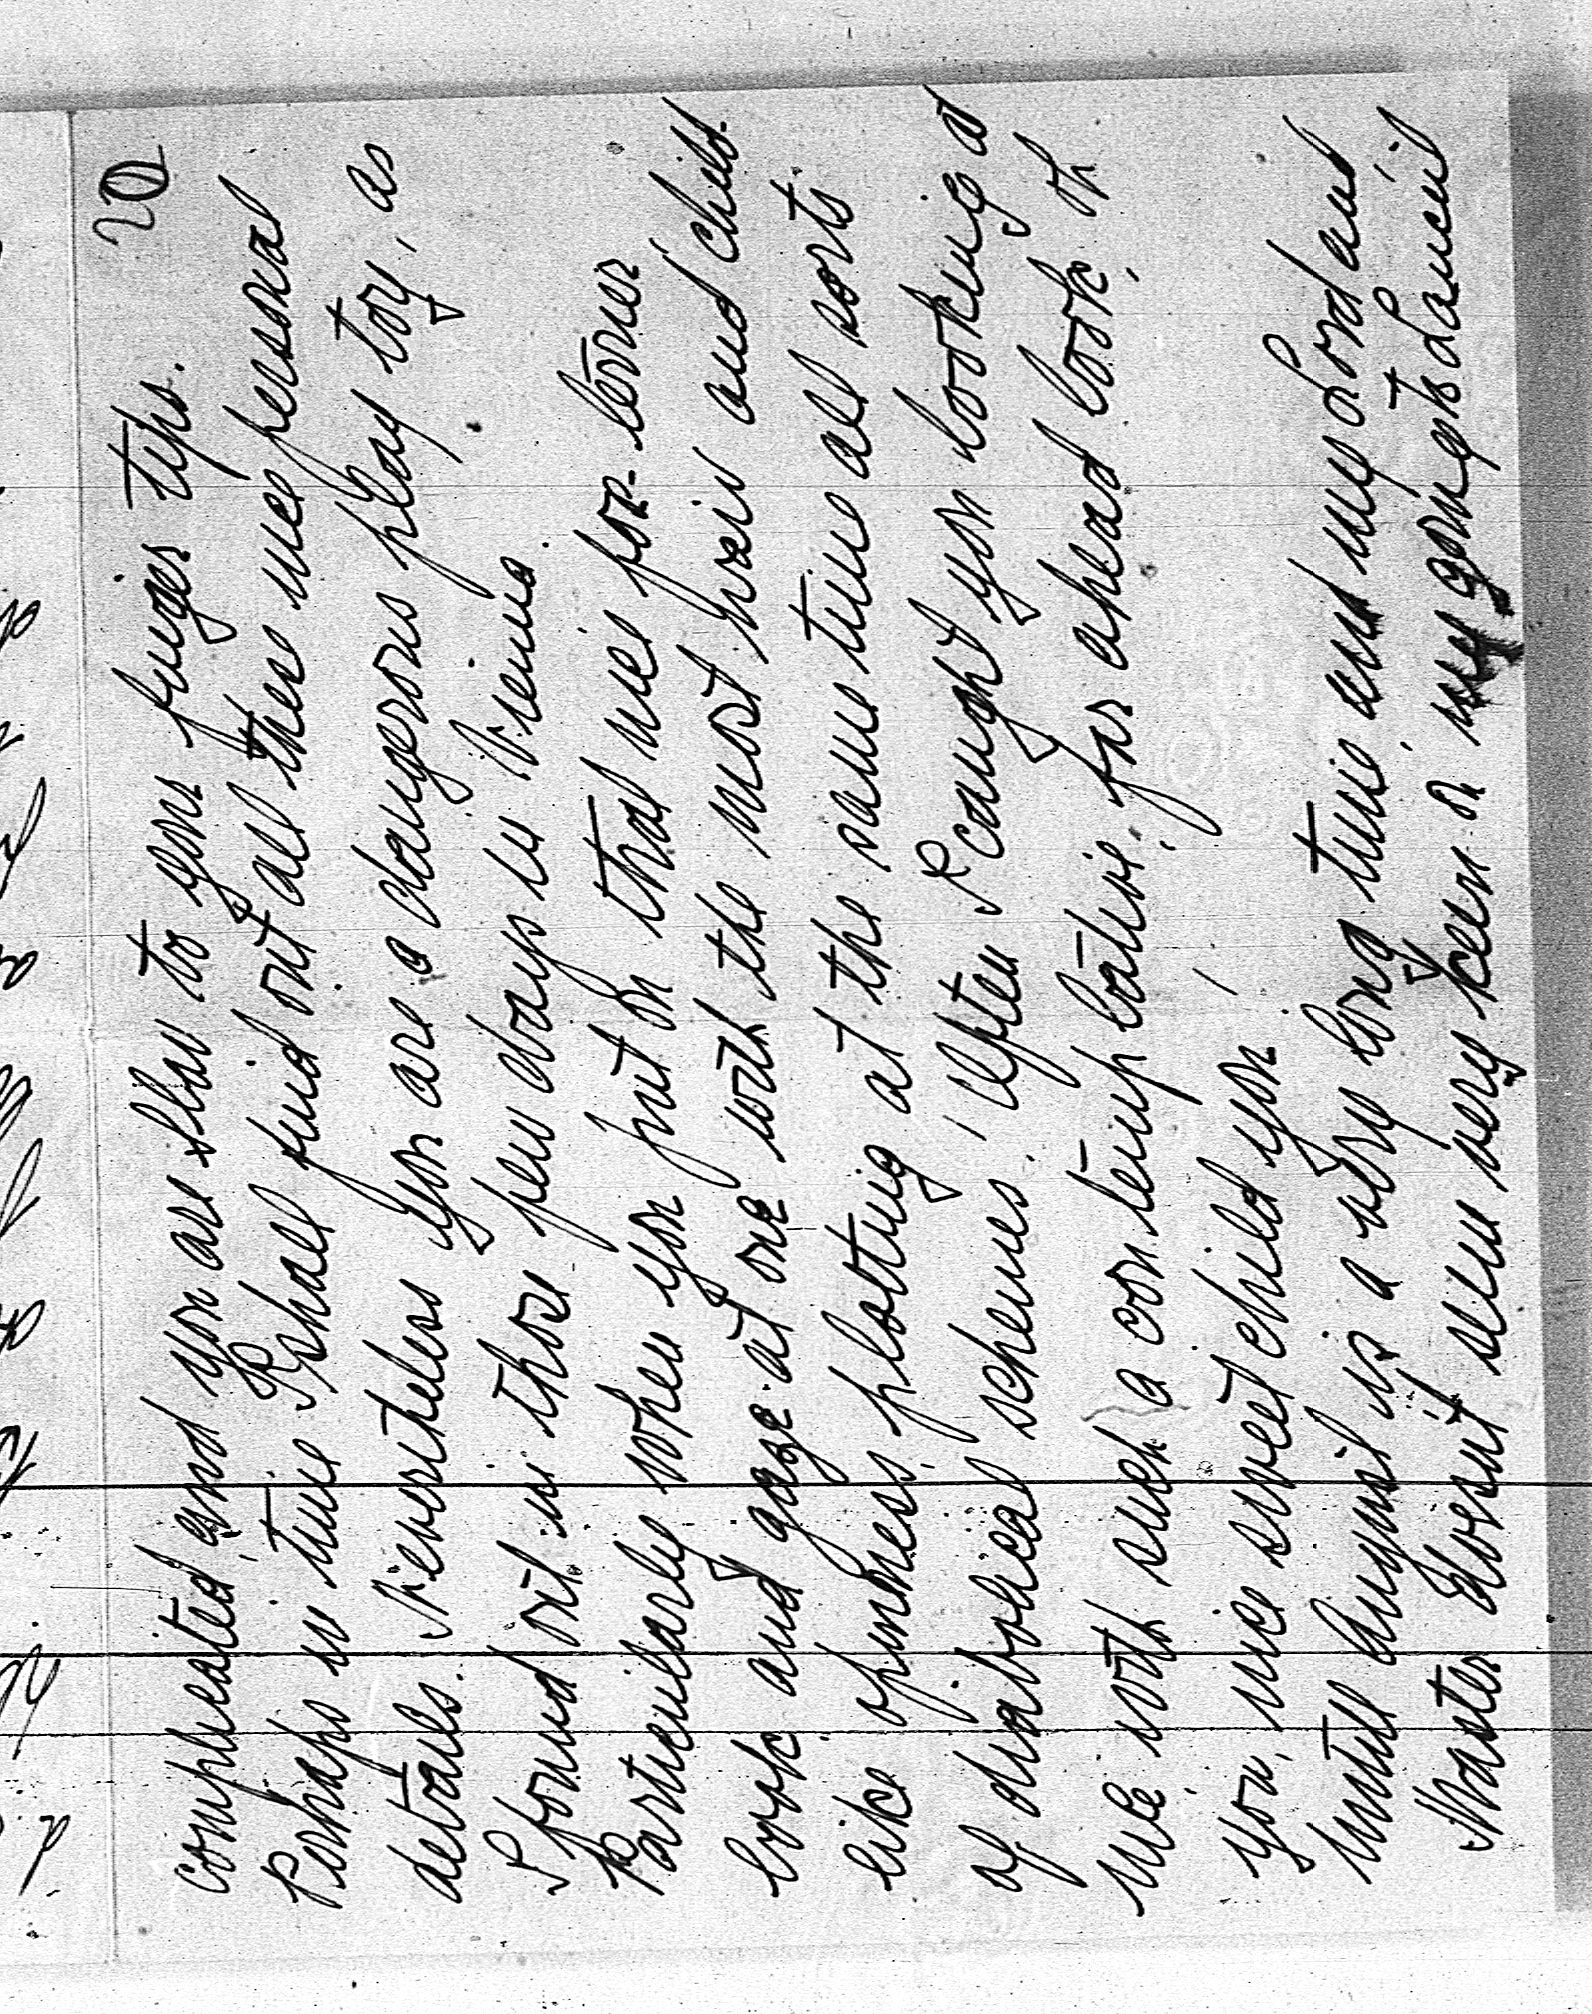 20
complicated, and you are Slav to your finger tips.
Perhaps in time I shall find out all these wee personal
details. Nevertheless you are a dangerous play toy, as
I found out in those few days in Vienna.
Particularly when you put on that wee far-
look and gaze at one with the most naiv and 'child
like' openness, plotting at the same time all sorts
of diabolical schemes. Often I caught you looking at
me with such a contemplative, far ahead look, oh
you, nice sweet child you!
Until August is a very long time and my Lord and
Master doesn't seem very keen on my going to